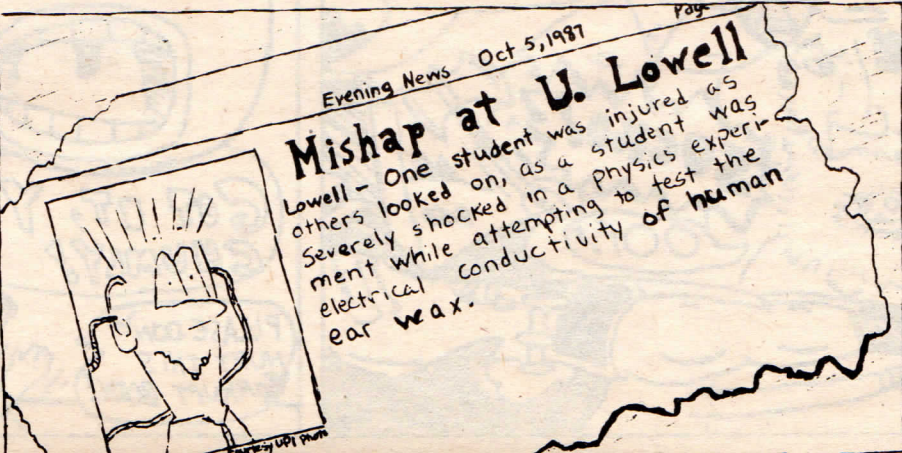 Page
Evening News Oct 5, 1987
Mishap at U. Lowell
Lowell - One student was injured as
others looked on, as a student was
severely shocked in a physics experi-
ment while attempting to test the
electrical conductivity of human
ear wax.
Courtesy UPI Photo